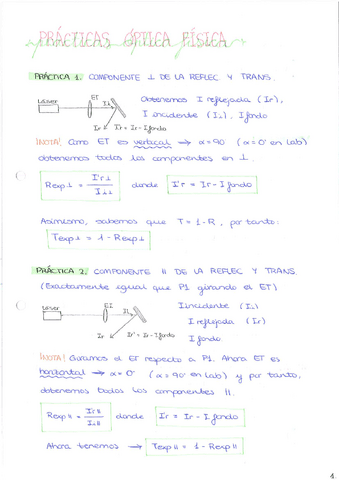 PRÁCTICAS ÓPTICA FÍSICA
PRÁCTICA 1. COMPONENTE ⊥ DE LA REFLEC Y TRANS.
Láser
ET
I⊥
Ir
I'r = Ir - I fondo
Obtenemos I reflejada (Ir),
I incidente (I⊥), I fondo
¡NOTA! Como ET es vertical → α=90 (α=0° en lab)
obtenemos todas las componentes en ⊥.
Rexp⊥ = I'r⊥ / I⊥⊥ donde I'r = Ir - I fondo
Asimismo, sabemos que T = 1-R, por tanto:
Texp⊥ = 1 - Rexp⊥
PRÁCTICA 2. COMPONENTE II DE LA REFLEC Y TRANS.
(Exactamente igual que P1 girando el ET)
láser
ET
Ir
Ir' = Ir - I fondo
I incidente
I reflejada (Ir)
I fondo
¡NOTA! Giramos el ET respecto a P1. Ahora ET es
horizontal → α=0° (α=90° en lab) y por tanto,
obtenemos todas las componentes II.
Rexp II = donde Ir = Ir - I fondo
Ahora tenemos → Texp II = 1 - Rexp II
4